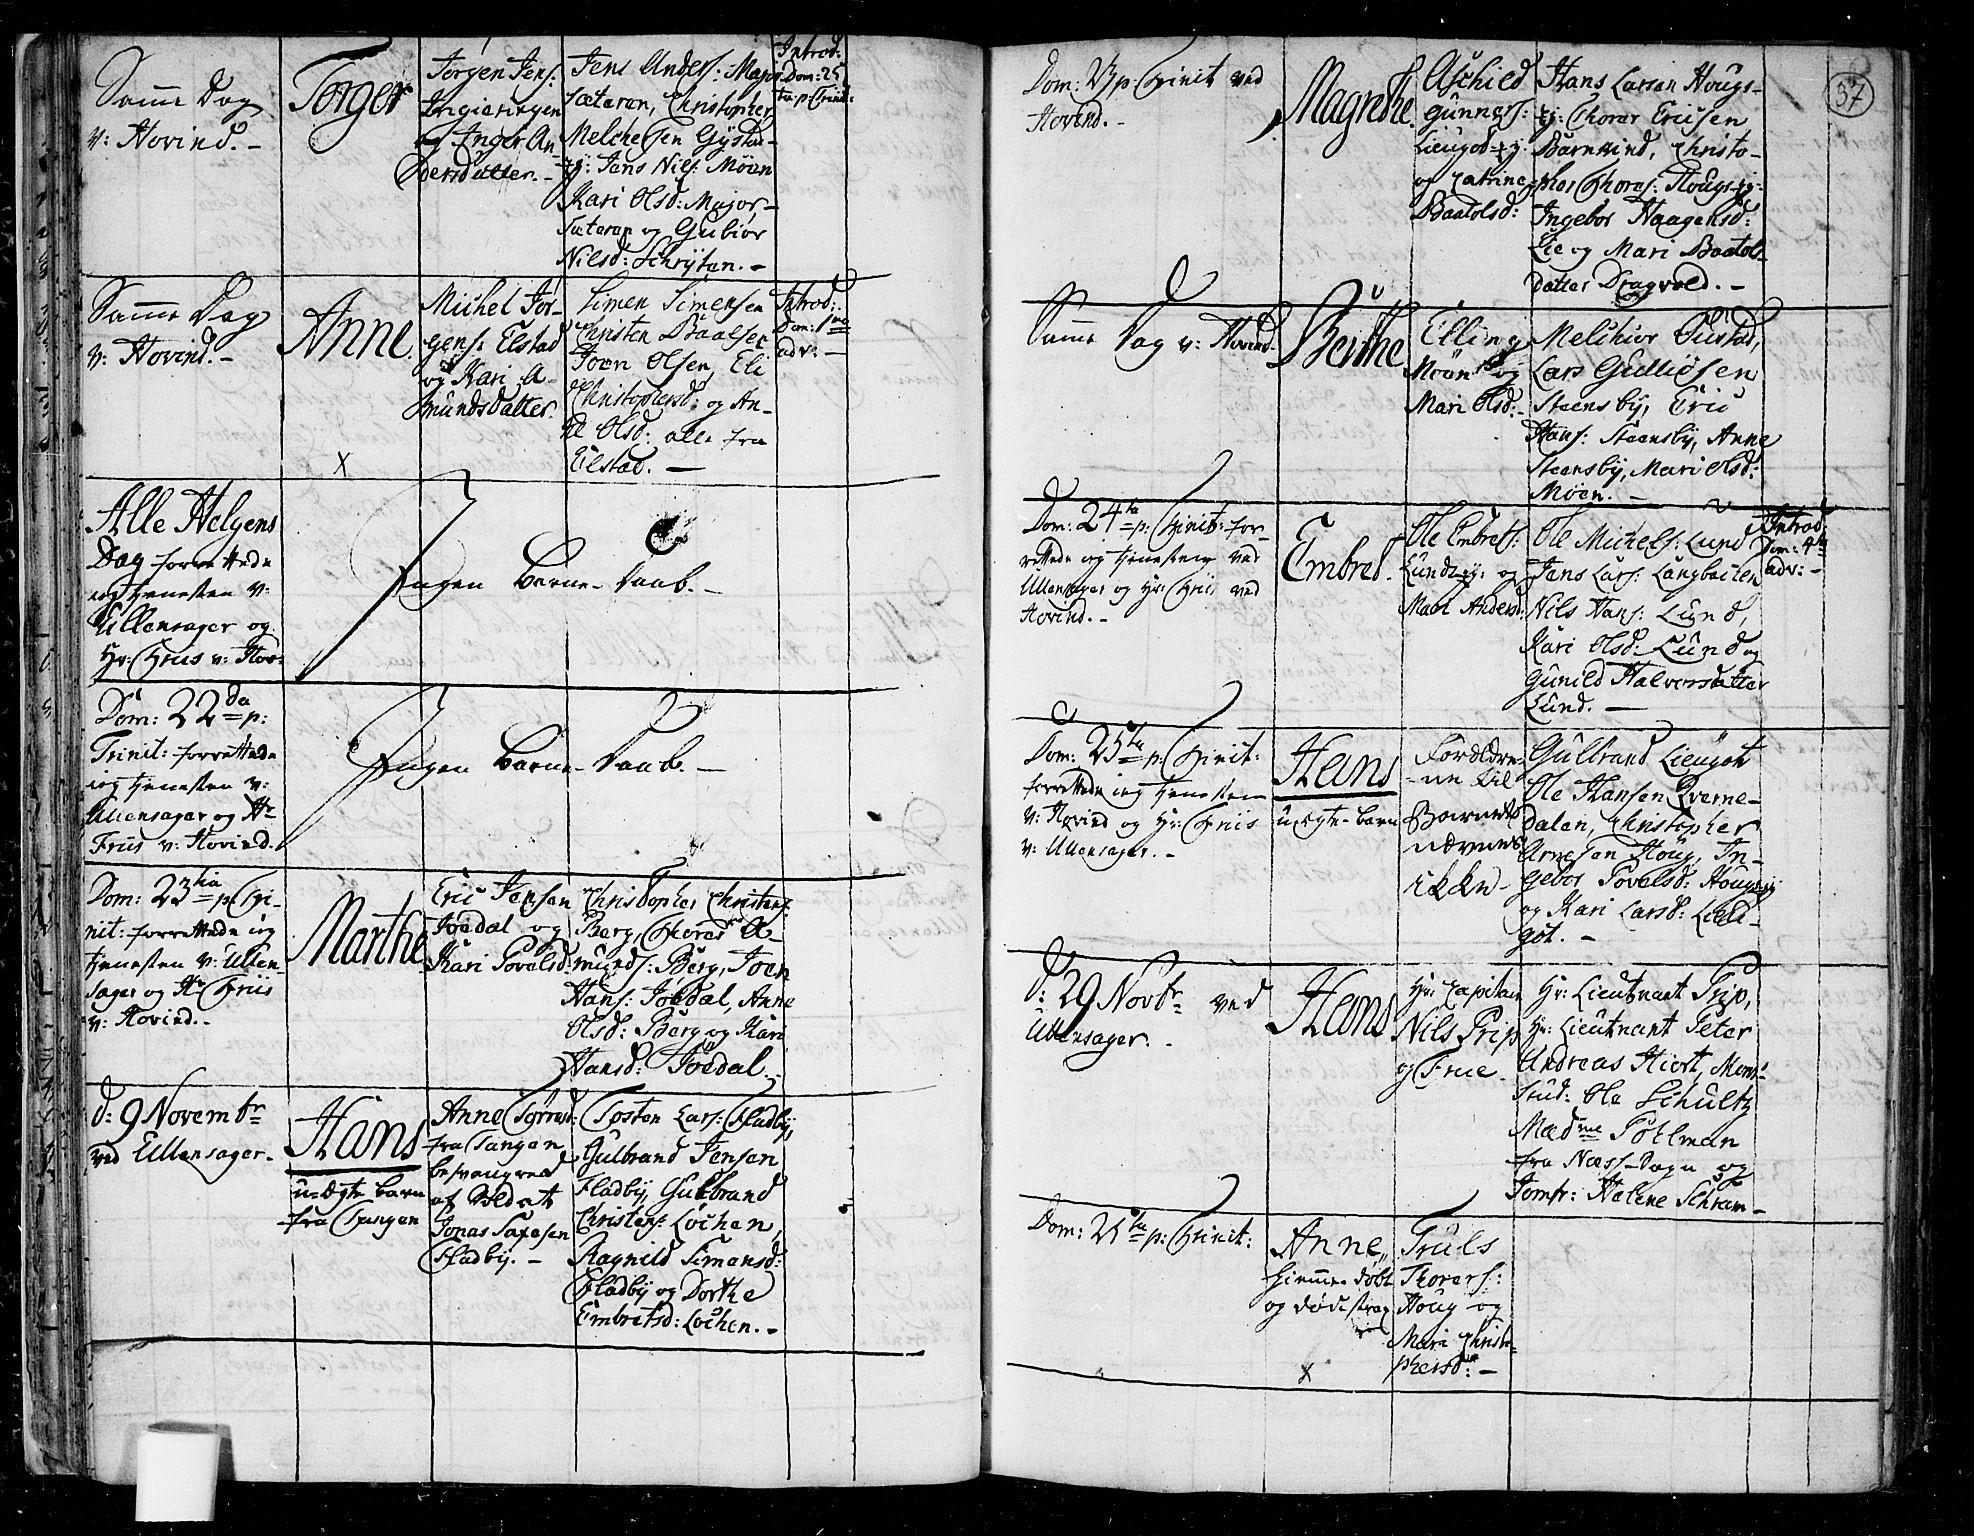 Samme Dag
v: Hovind. -
Torger
Jörgen Jens:
Ingieringen
og Inger An-
dersdatter. -
Jens Anders: Major
Sæteren, Christopher
Melchersen Gystu-
Jens Nils: Möen
Kari Olsd: Major-
Sæteren og Gubiör
Nilsd: Schrÿten. -
Introd:
Dom: 25
ta p: Trinit:
Samme Dag
v: Hovind. -
Anne.
Michel Jör-
gens: Elstad
og Kari A-
mundsdatter.
Simen Simensen
Christen Paalsen
Joen Olsen, Eli
Christophersd: og An-
ne Olsd: alle fra
Elstad. -
Introd:
Dom: 1ma
adv: -
X
Alle Helgens
Dag forrettede
ieg tjenesten v:
Ullensager og
Hr: Friis v: Hov:
Ingen Barne-Daab. -
Dom: 22da p:
Trinit: forrettede
ieg tjenesten v:
Ullensager og Hr
Friis v: Hovind.
Ingen Barne-Daab. -
Dom: 23tia p: Tri-
nit: forrettede ieg
tjenesten v: Ullen-
sager og Hr Friis
v: Hovind. -
Marthe
Eric Jensen
Joedal og
Kari Povelsd:
Christopher Christens:
Berg, Thorer A-
munds: Berg, Joen
Hans: Joedal, Anne
Olsd: Berg og Kari
Hansd: Joedal. -
d: 9 Novembr
ved Ullensager. -
Hans
u-ægte barn
fra Tangen
Anne Torersd:
fra Tangen
besvangred
af Soldat
Jonas Saxesen
Fladby. -
Tosten Lars: Fladby,
Gulbrand Jensen
Fladby, Gulbrand
Christens: Löchen,
Ragnild Simensd:
Fladby og Dorthe
Embretsd: Löchen. -
37
Dom: 23 p: Trinit ved
Hovind. -
Magrethe.
Aschild
Gunners:
Lieugod-ej:
og Catrine
Baatolsd:
Hans Larsen Hougs-
ej: Thorer Ericsen
Barnvind, Christo-
pher Thores: Hougs-ej:
Ingebor Haagensd:
Lie og Mari Baatols-
datter Dragvold. -
Samme Dag v: Hovind.
Berthe
Elling
Möen og
Mari Olsd: -
Melchior Gustad,
Lars Gulliösen
Steensby, Eric
Hans: Steensby, Anne
Steensby, Mari Olsd:
Möen. -
Dom: 24ta p: Trinit: for-
rettede ieg tjenesten ved
Ullensager og Hr: Friis ved
Hovind. -
Embret.
Ole Embrets:
Lunds-ej: og
Mari Andersd:
Ole Michels: Lund
Jens Lars: Langbacken
Nils Hans: Lund,
Kari Olsd: Lund og
Gunild Halvorsdatter
Lund. -
Introd:
Dom: 4ta
adv: -
Dom: 25ta p: Trinit:
forrettede ieg tjenesten
v: Hovind og Hr: Friis
v: Ullensager. -
Hans
u-ægte-barn
Foreldre-
ne til
Barnet
nævnes
ikke -
Gulbrand Lieugot
Ole Hansen Qverne-
dalen, Christopher
Arnesen Houg, In-
gebor Povelsd: Hougs-ej
og Kari Larsd: Lieu-
got. -
d: 29 Novbr ved
Ullensager. -
Hans
Hr: Capitain
Nils Prip
og Frue
Hr: Lieutnant Prip,
Hr: Lieutnant Peter
Andreas Hiort, Mons:
Stud: Ole Schultz
Mædme Poelman
fra Næss-Sogn og
Jomfr: Helene Schram -
Dom: 25ta p: Trinit:
Anne,
hiemme döbt
og död strax
Truls
Thorers:
Houg og
Mari Christo-
phersd: -
X